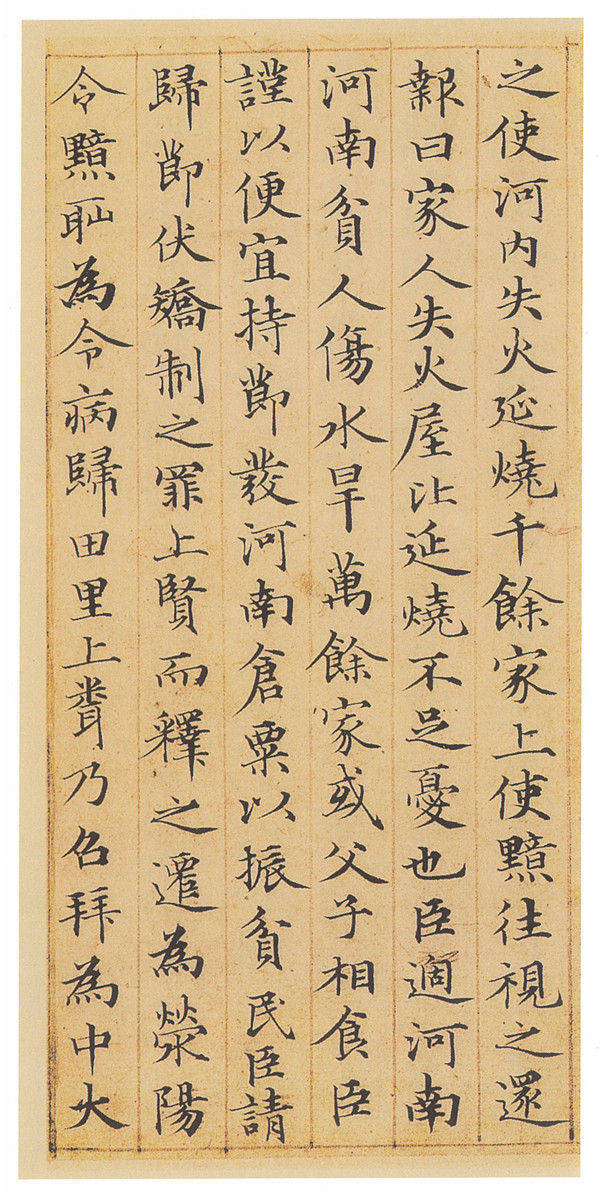 之使河内失火延燒千餘家上使黯往視之還
報曰家人失火屋比延燒不足憂也臣適河南
河南貧人傷水旱萬餘家或父子相食臣
謹以便宜持節發河南倉粟以振貧民臣請
歸節伏矯制之罪上賢而釋之遷為滎陽
令黯耻為令病歸田里上聞乃召拜為中大